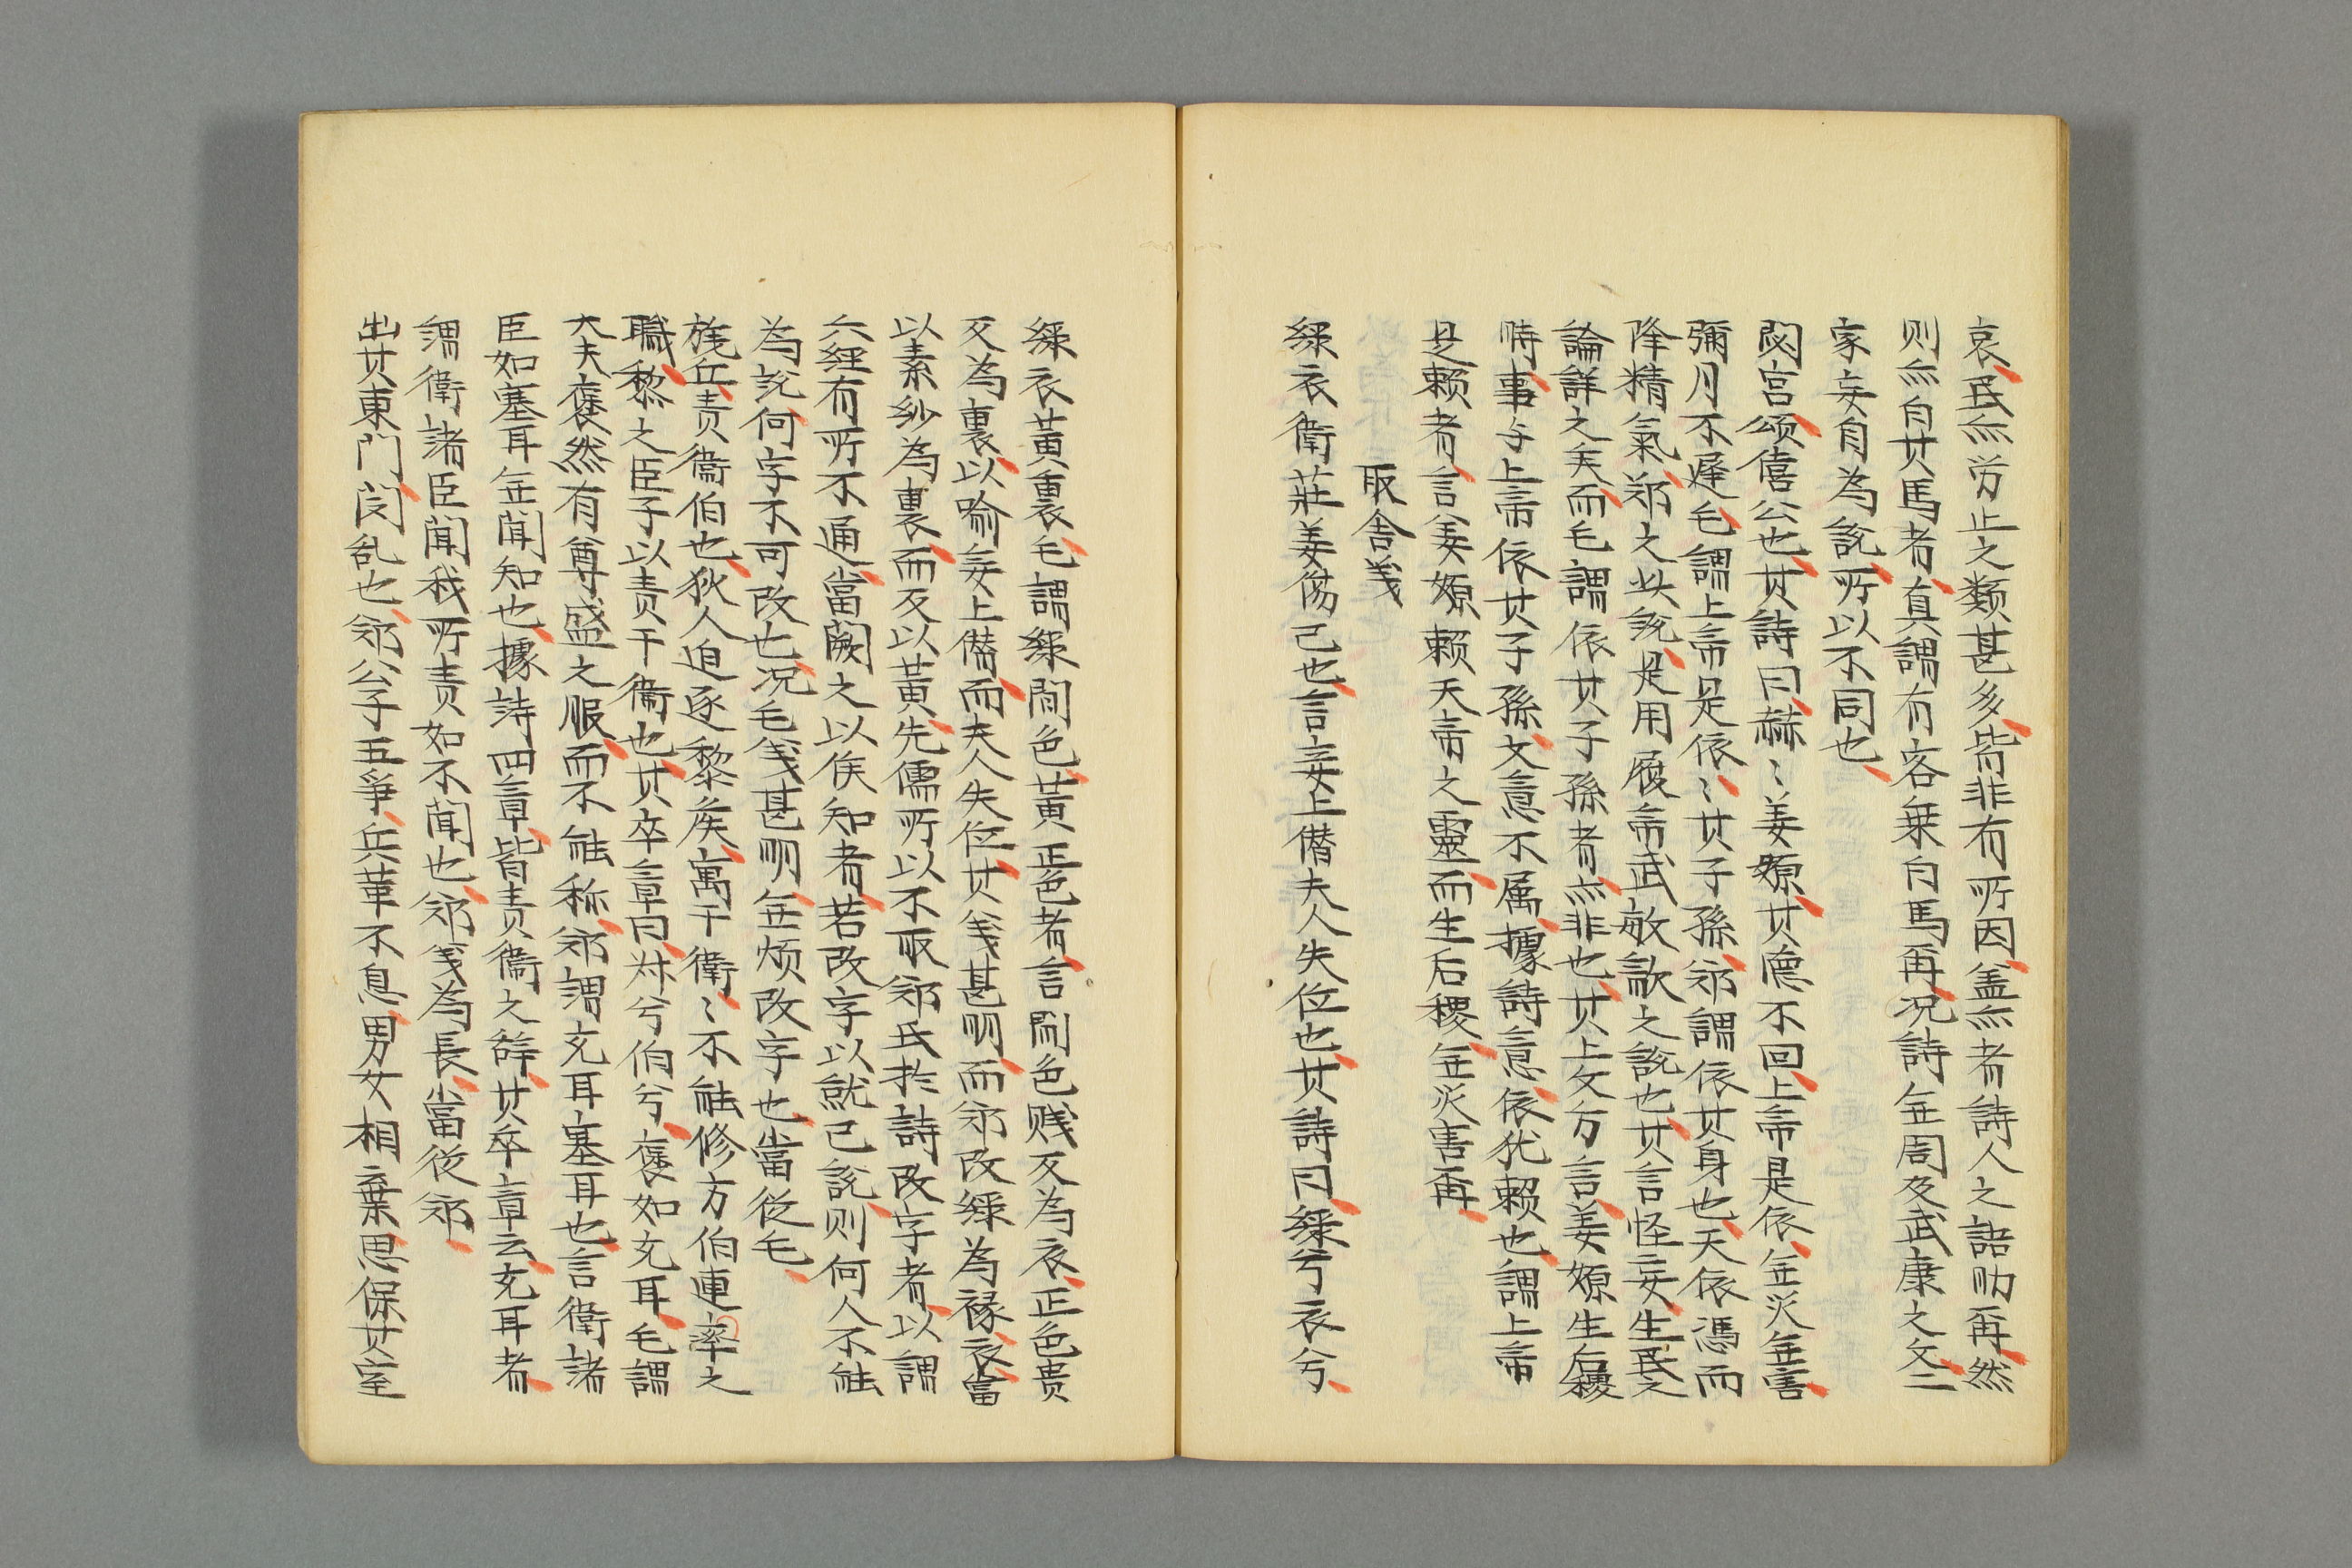 哀民亦労止之類甚多皆非有所因盖亦者詩人之語助再然
则亦白其馬者真謂有客乗白馬再况詩無周及武康之文二
家妄自為說所以不同也
閟宮頌僖公也其詩曰赫〻姜嫄其德不回上帝是依無災無害
彌月不遲毛謂上帝是依〻其子孫鄭謂依其身也天依馮而
降精氣鄭之此說是用履帝武敏歆之說也其言怪妄生民之
論詳之矣而毛謂依其子孫者亦非也其上文方言姜嫄生后稷
時事与上帝依其子孫文意不属據詩意依犹赖也謂上帝
是赖者言姜嫄赖天帝之靈而生后稷無災害再
取舎義
綠衣衛莊姜傷己也言妾上僣夫人失位也其詩曰綠兮衣兮
綠衣黃裏毛謂綠間色黃正色者言間色贱反為衣正色贵
反為裏以喻妾上僣而夫人失位其義甚明而鄭改綠為褖衣當
以素紗為裏而反以黃先儒所以不取鄭氏扵詩改字者以謂
六經有所不通當闕之以俟知者若改字以就己說则何人不能
為說何字不可改也况毛義甚明無烦改字也當從毛
旄丘责衞伯也狄人迫逐黎侯寓于衛〻不能修方伯連率之
職黎之臣子以责于衞也其卒章曰叔兮伯兮褎如充耳毛謂
大夫褎然有尊盛之服而不能称鄭謂充耳塞耳也言衛諸
臣如塞耳無聞知也據詩四章皆责衞之辞其卒章云充耳者
謂衛諸臣聞我所责如不聞也鄭義為長當從鄭
出其東門閔乱也鄭公子五爭兵革不息男女相棄思保其室